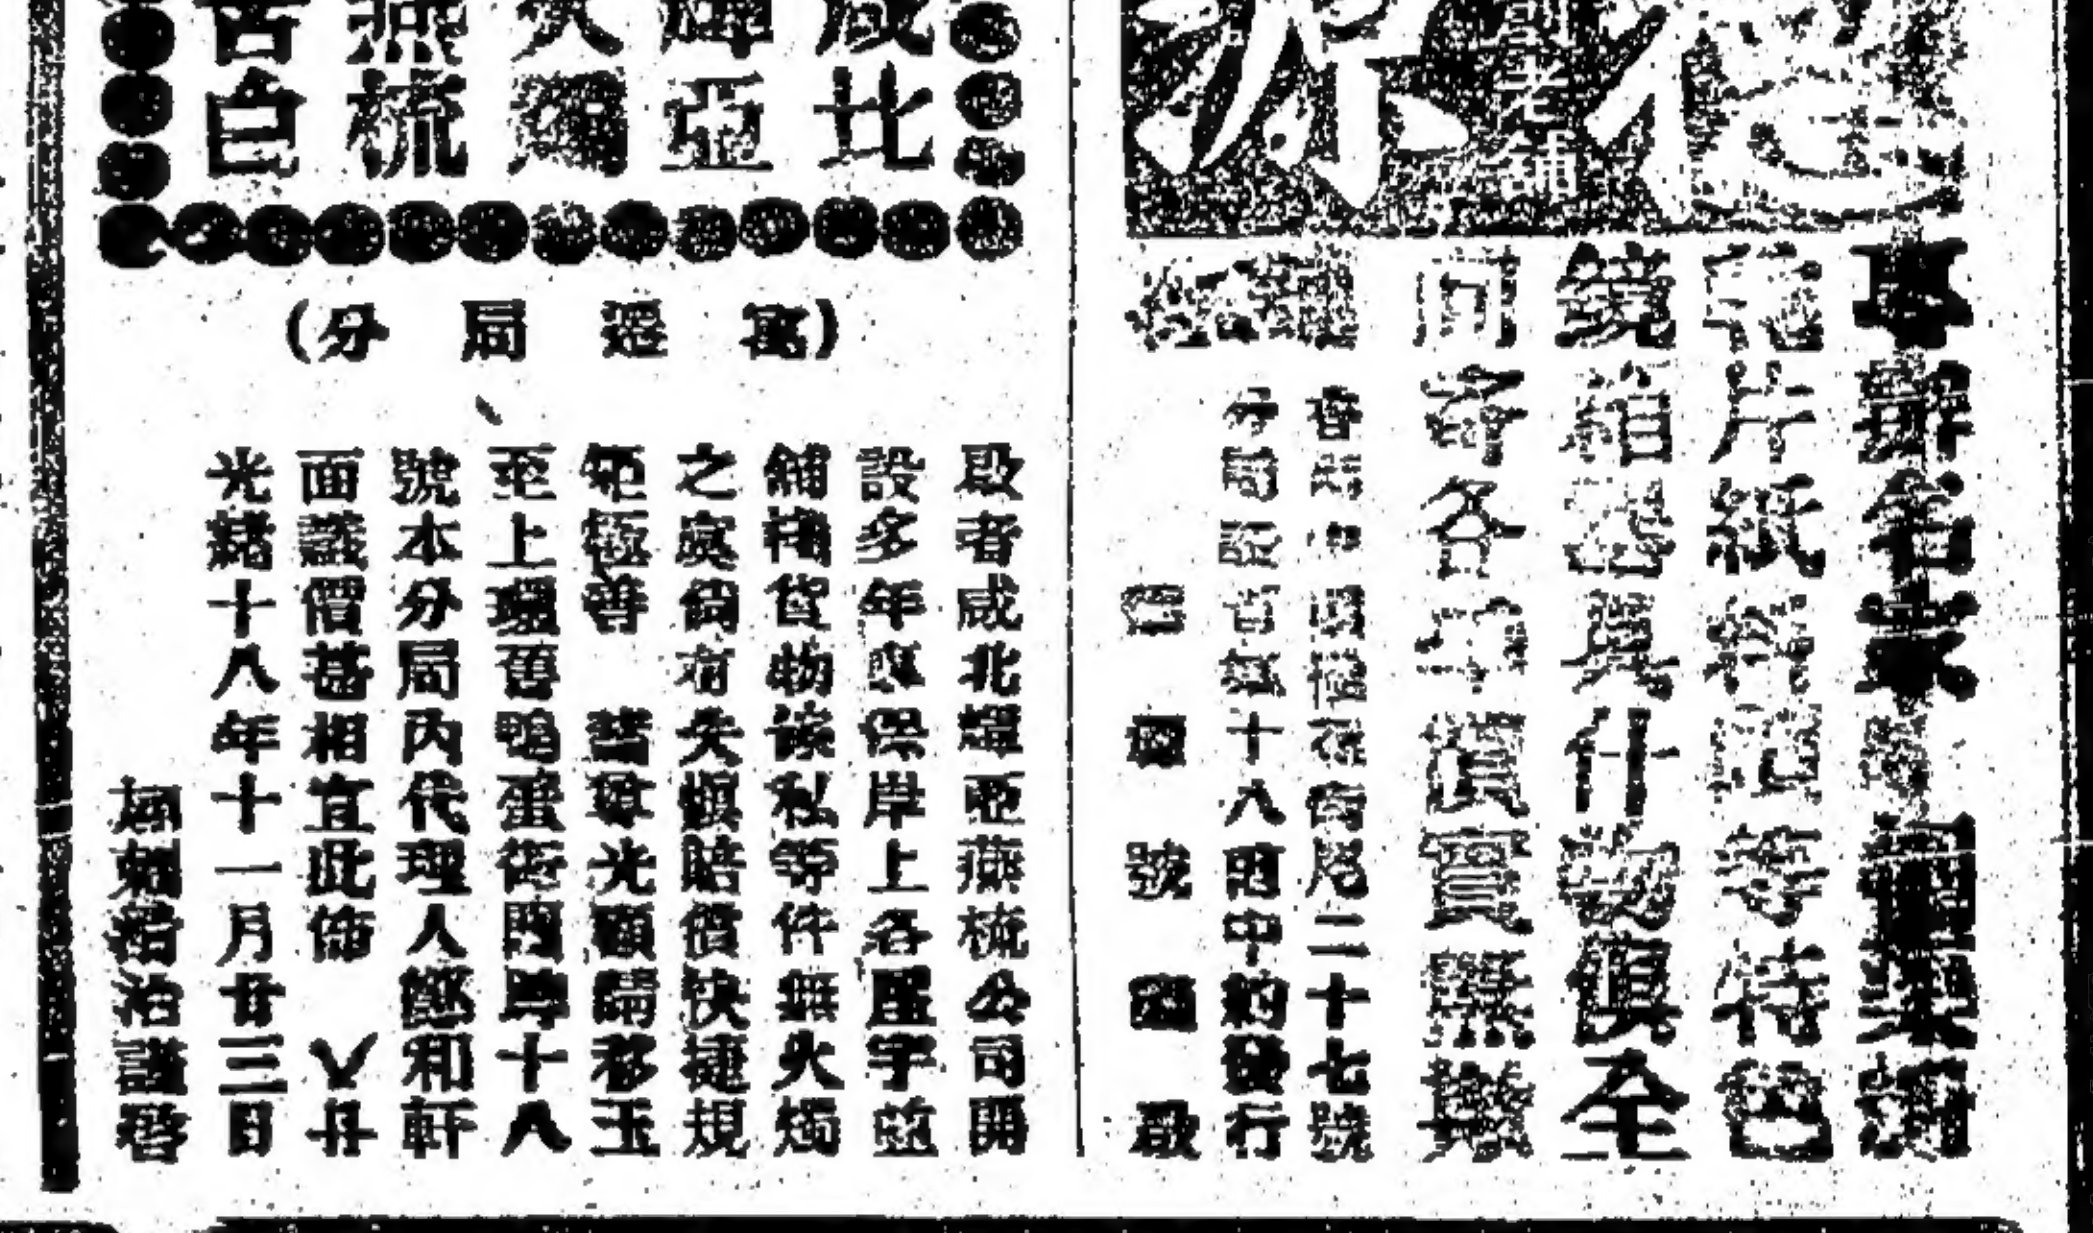 源
老舖
德
專辦名家
片紙料等特色
鏡箱器具什物俱全
寄各埠價實無欺
香港中環尾二十七號
分局設省城十八甫中約發行
德源號謹啟
咸北
輝亞
火燭
燕梳
告白
(分局
啟者咸北輝亞燕梳公司開
設多年專保岸上各屋宇並
舖棧貨物傢私等件無火燭
之虞倘有失慎賠償快捷規
矩極善 諸尊光顧請移玉
至上環舊鴨蛋街門牌十八
號本分局內代理人鄭和軒
面議價甚相宜此佈
光緒十八年十一月廿三日
謹啓